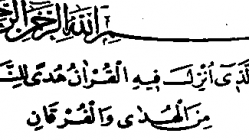 بسم الله الرحمن الرح
لَّذِى أُنْزِلَ فِيهِ الْقُرْاٰنُ هُدًى لِلنَّ
مِنَ الْهُدٰى وَالْفُرْقَانِ